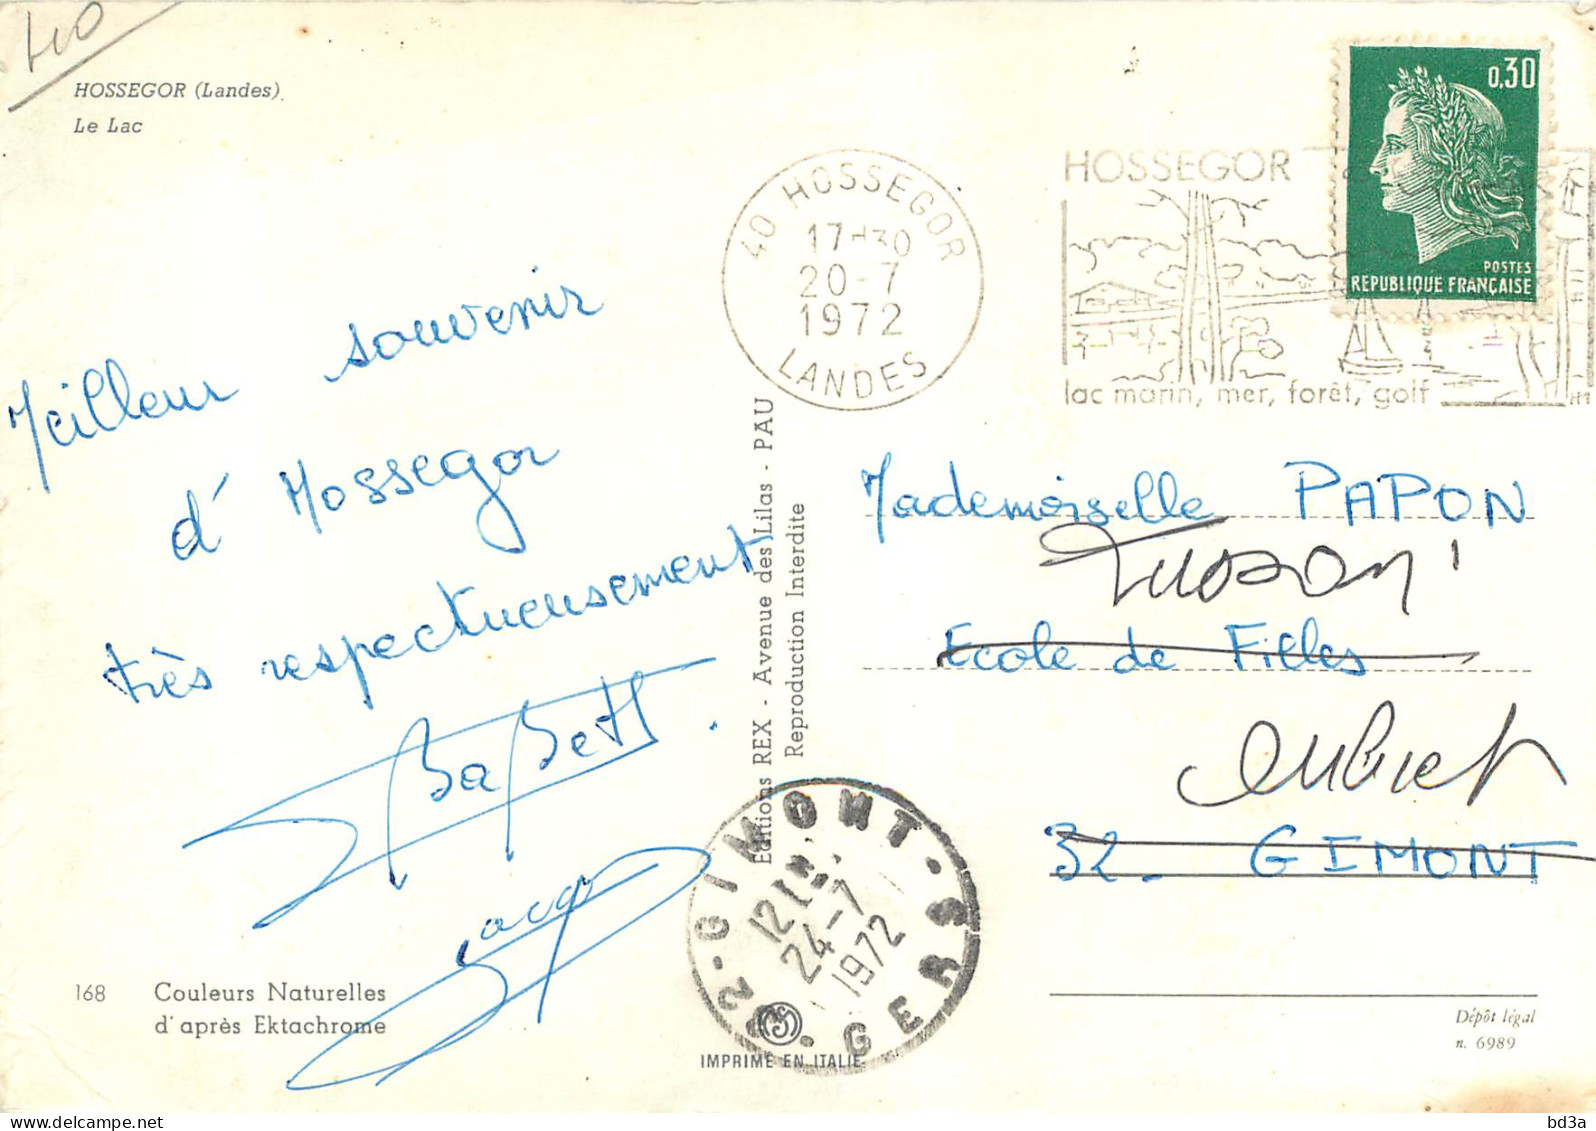 40
HOSSEGOR (Landes)
Le Lac
Meilleur souvenir
d'Hossegor
très respectueusement
168 Couleurs Naturelles
d'après Ektachrome
Editions REX - Avenue des Lilas - PAU
Reproduction Interdite
IMPRIMÉ EN ITALIE
40 HOSSEGOR
17H30
20-7
1972
LANDES
HOSSEGOR
lac marin, mer, forêt, golf
0,30
POSTES
REPUBLIQUE FRANÇAISE
Mademoiselle PAPON
Ecole de Filles
Aubiet
32 - GIMONT
32-GIMONT
12H
24-7
1972
GERS
Dépôt légal
n. 6989
delcampe.net
bd3a